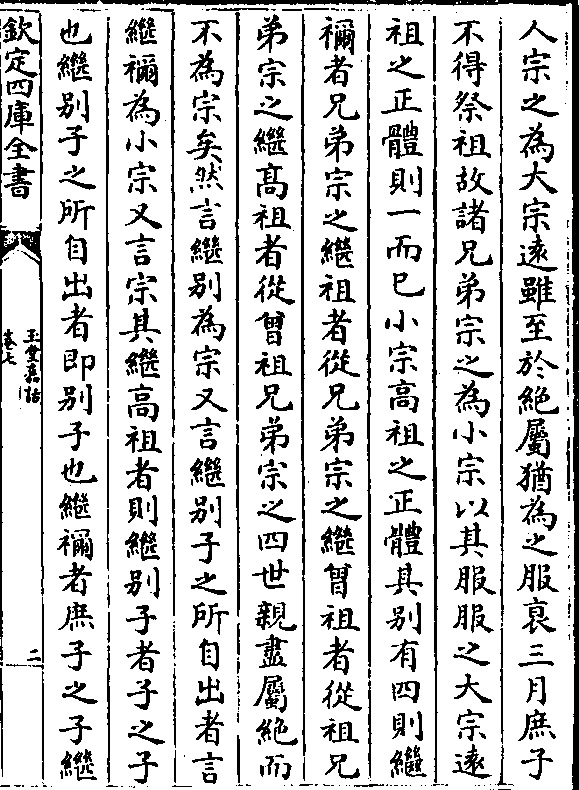 人宗之為大宗遠雖至於絶屬猶為之服衰三月庶子
不得祭祖故諸兄弟宗之為小宗以其服服之大宗遠
祖之正體則一而已小宗高祖之正體其别有四則繼
禰者兄弟宗之繼祖者從兄弟宗之繼曾祖者從祖兄
弟宗之繼高祖者從曾祖兄弟宗之四世親盡屬絶而
不為宗矣然言繼别為宗又言繼别子之所自出者言
繼禰為小宗又言宗其繼高祖者則繼别子者子之子
也繼别子之所自出者即别子也繼禰者庶子之子繼
欽定四庫全書
玉堂嘉話
卷七
二